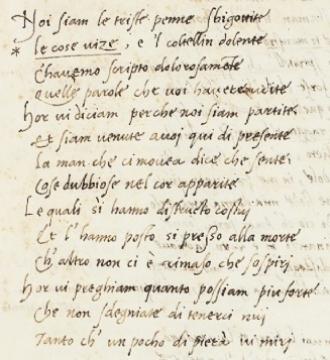 Noi siam le triste penne sbigottite
* le cose uize, e 'l coltellin dolente
Chauemo scripto dolorosamẽte
Quelle parole che uoi hauete udite
Hor ui diciam perche noi siam partite
Et siam uenute a uoi qui di presente
La man che ci mouea dice che sente
Cose dubbiose nel cor apparite
Le quali si hanno distructo costui
Et l' hanno posto si presso alla morte
Ch altro non ci è rimaso che sospiri
Hor ui preghiam quanto possiam piu forte
Che non sdegniate di tenerci nui
Tanto ch' un pocho di pietà ui miri